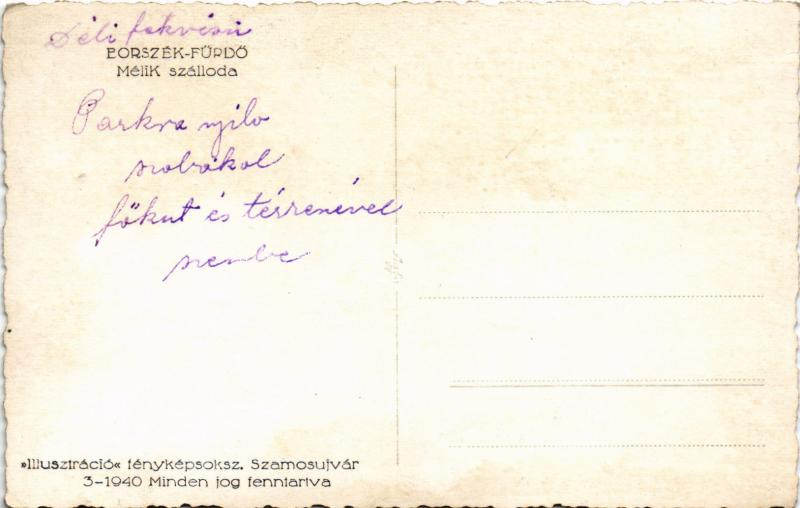 Déli fekvésü
BORSZÉK-FÜRDŐ
Mélik szálloda
Parkra nyilo
szobákal
főkut és térrenével
szembe
»Illusztráció« fényképsoksz. Szamosujvár
3-1940 Minden jog fenntartva